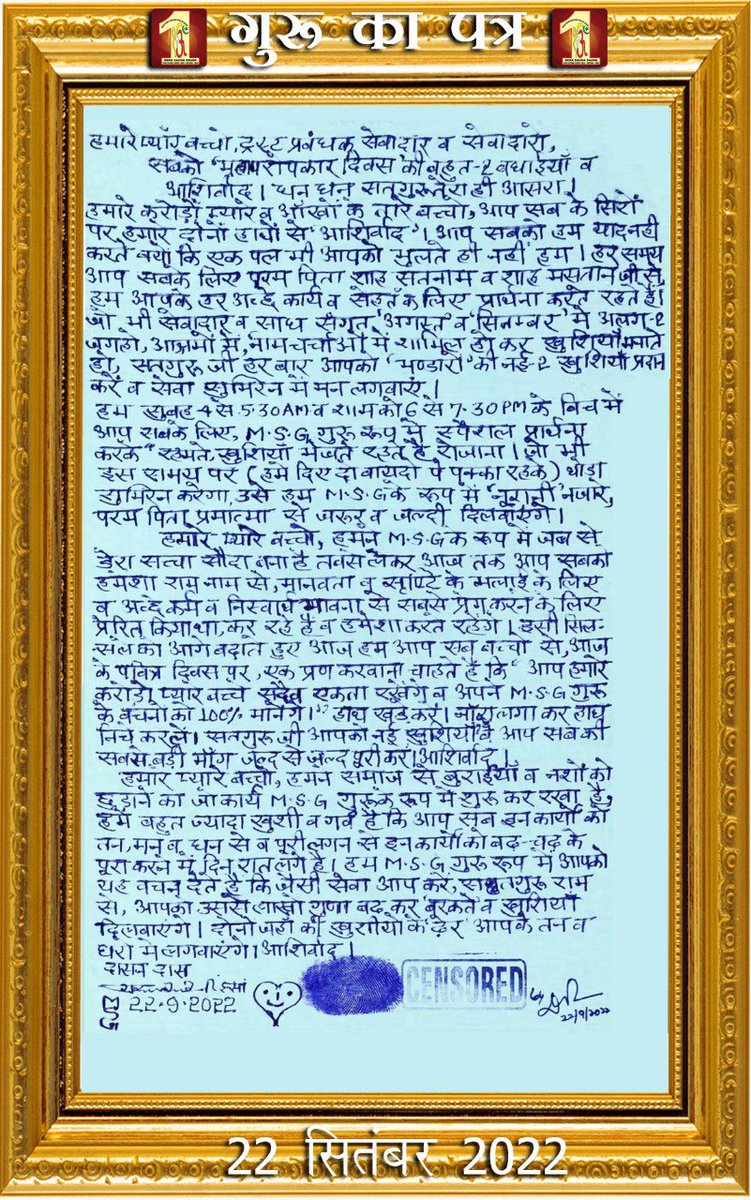 गुरू का पत्र
हमारे प्यारे बच्चो, ट्रस्ट प्रबंधक सेवादार व सेवादारों,
सबको "महापरोपकार दिवस" की बहुत-2 बधाईयाँ व
आशिर्वाद। धन धन सतगुरू तेरा ही आसरा।
हमारे करोड़ों प्यारे व आँखों के तारे बच्चो, आप सब के सिरों
पर हमारे दोनों हाथों से 'आशिर्वाद'। आप सबको हम याद नही
करते क्यों कि एक पल भी आपको भुलते ही नहीं हम। हर समय
आप सबके लिए परम पिता शाह सतनाम व शाह मसतान जी से,
हम आपके हर अच्छे कार्य व सेहत के लिए प्रार्थना करते रहते हैं।
जो भी सेवादार व साध संगत 'अगस्त' व 'सितम्बर' में अलग-2
जगहों, आश्रमों में, नाम-चर्चाओं में शामिल हो कर खुशियाँ मनाते
हो, सतगुरू जी हर बार आपको 'भण्डारों' की नई-2 खुशियाँ प्रदान
करें व सेवा सुमिरन में मन लगवाएं।
हम सुबह 4 से 5.30 AM व शाम को 6 से 7.30 PM के बिच में
आप सबके लिए, M.S.G गुरू रूप में स्पैशल प्रार्थना
करके "रहमतें, खुशियाँ भेजते रहते हैं रोजाना। जो भी
इस समय पर (हमें दिए दो वायदों पे पक्का रहके) थोड़ा
सुमिरन करेगा, उसे हम M.S.G के रूप में 'नुरानी' नजारे,
परम पिता प्रमात्मा से जरूर व जल्दी दिलवाएंगे।
हमारे प्यारे बच्चो, हमने M.S.G के रूप में जब से
डेरा सच्चा सौदा बना है तबसे लेकर आज तक आप सबको
हमेशा राम नाम से, मानवता व सृष्टि के भलाई के लिए
व अच्छे कर्म व निस्वार्थ भावना से सबसे प्रेम करने के लिए
प्रेरित किया था, कर रहे हैं व हमेशा करते रहेंगे। इसी सिल-
सले को आगे बढ़ाते हुए आज हम आप सब बच्चो से, आज
के पवित्र दिवस पर, एक प्रण करवाना चाहते हैं कि "आप हमारे
करोड़ों प्यारे बच्चे सदैव एकता रखेंगे व अपने M.S.G गुरू
के वचनों को 100% मानेंगे।" हाथ खड़े करें। नारा लगा कर हाथ
निचे करलें। सतगुरू जी आपको नई खुशियाँ दें आप सब की
सबसे बड़ी माँग जल्द से जल्द पुरी करें। आशिर्वाद।
हमारे प्यारे बच्चो, हमने समाज से बुराईयाँ व नशों को
छुड़ाने का जो कार्य M.S.G गुरू के रूप में शुरू कर रखा है,
हमें बहुत ज्यादा खुशी व गर्व है कि आप सब इन कार्यों को
तन, मन व धन से व पूरी लगन से इन कार्यों को बढ़-चढ़ के
पुरा करने में दिन रात लगे हैं। हम M.S.G गुरू रूप में आपको
यह वचन देते हैं कि जैसी सेवा आप करें, सतगुरू राम
से, आपको उससे लाखों गुणा बढ़ कर बरकतें व खुशियाँ
दिलवाएंगे। दोनों जहाँ की खुशीयों के ढ़ेर आपके तन व
घरों में लगवाएंगे। आशिर्वाद।
दासन दास
MSG
22.9.2022
CENSORED
22/9/2022
22 सितंबर 2022